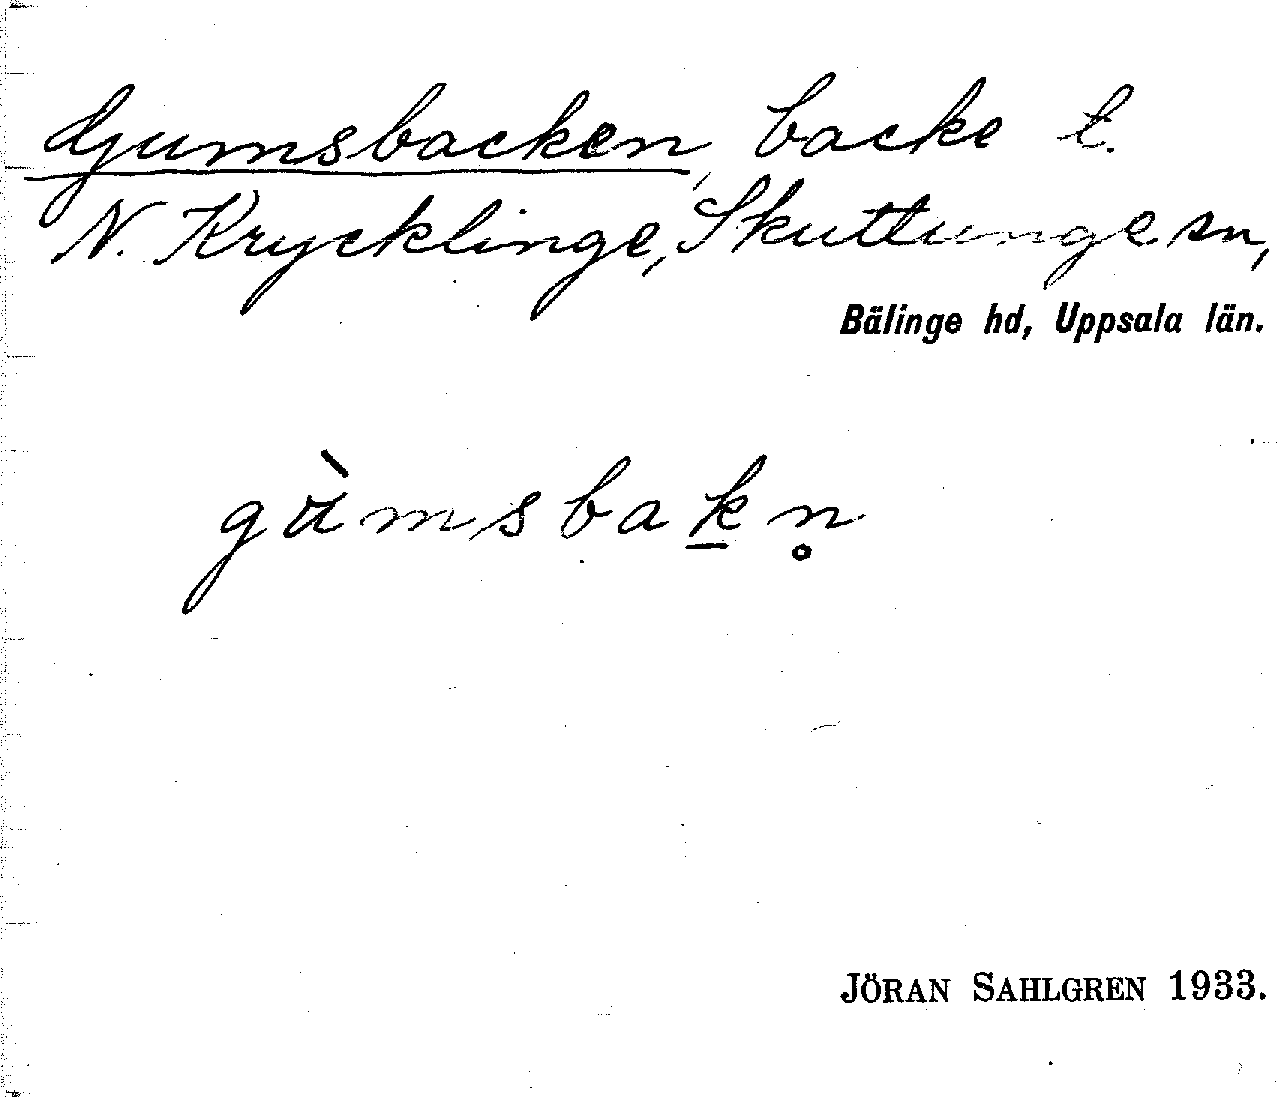 Gumsbacken, backe t.
N. Krycklinge, Skuttunge sn,
Bälinge hd, Uppsala län.
gùmsbak̲n̥
JÖRAN SAHLGREN 1933.